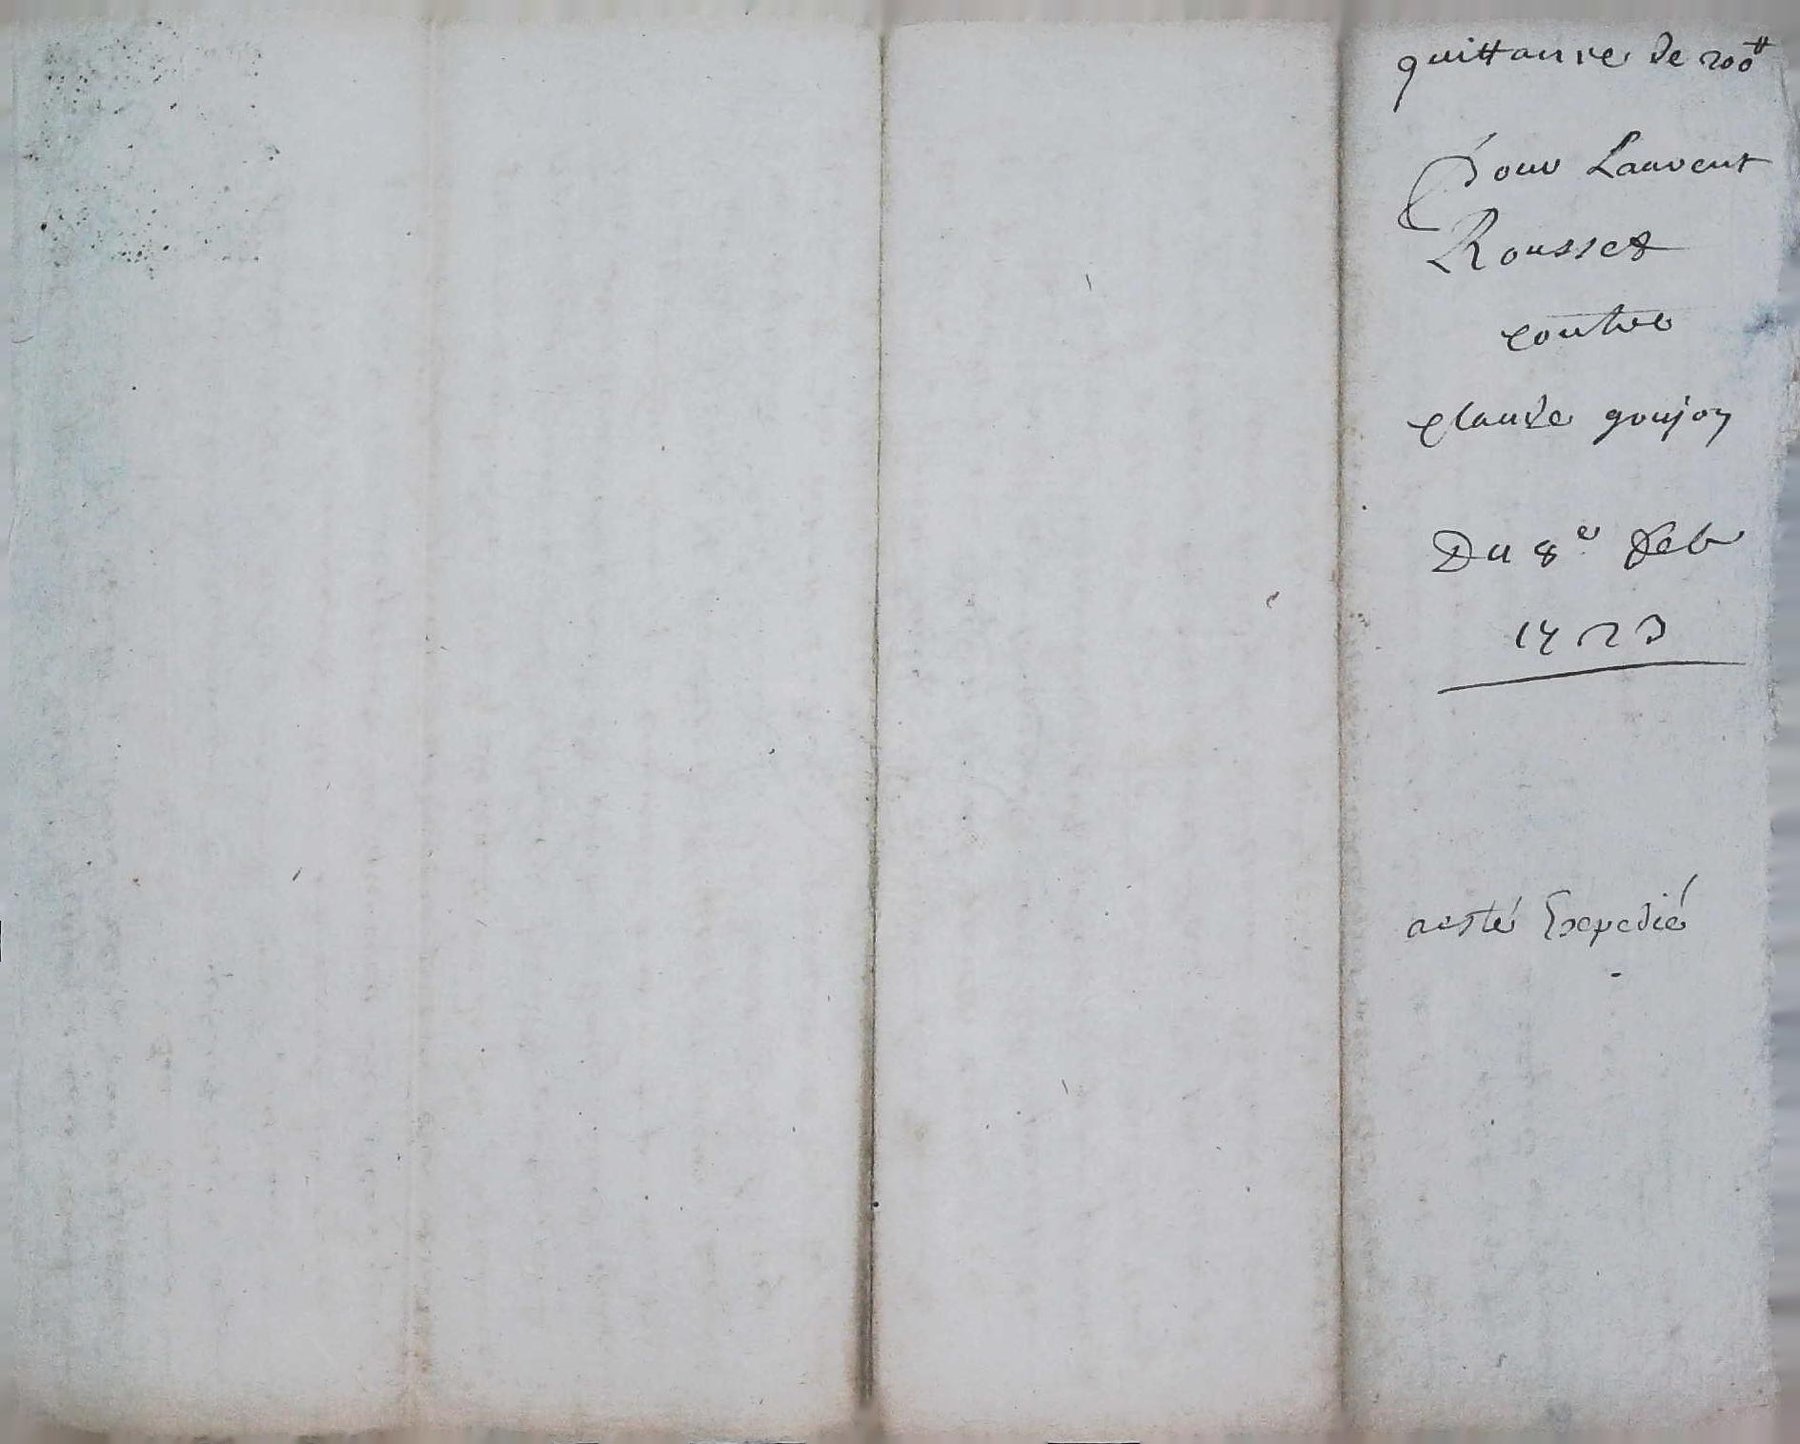 quittance de 200ᵗᵗ
pour Laurent
Rousset
contre
claude goujon
Du 8ᵉ feb
1723
aesté Expedié